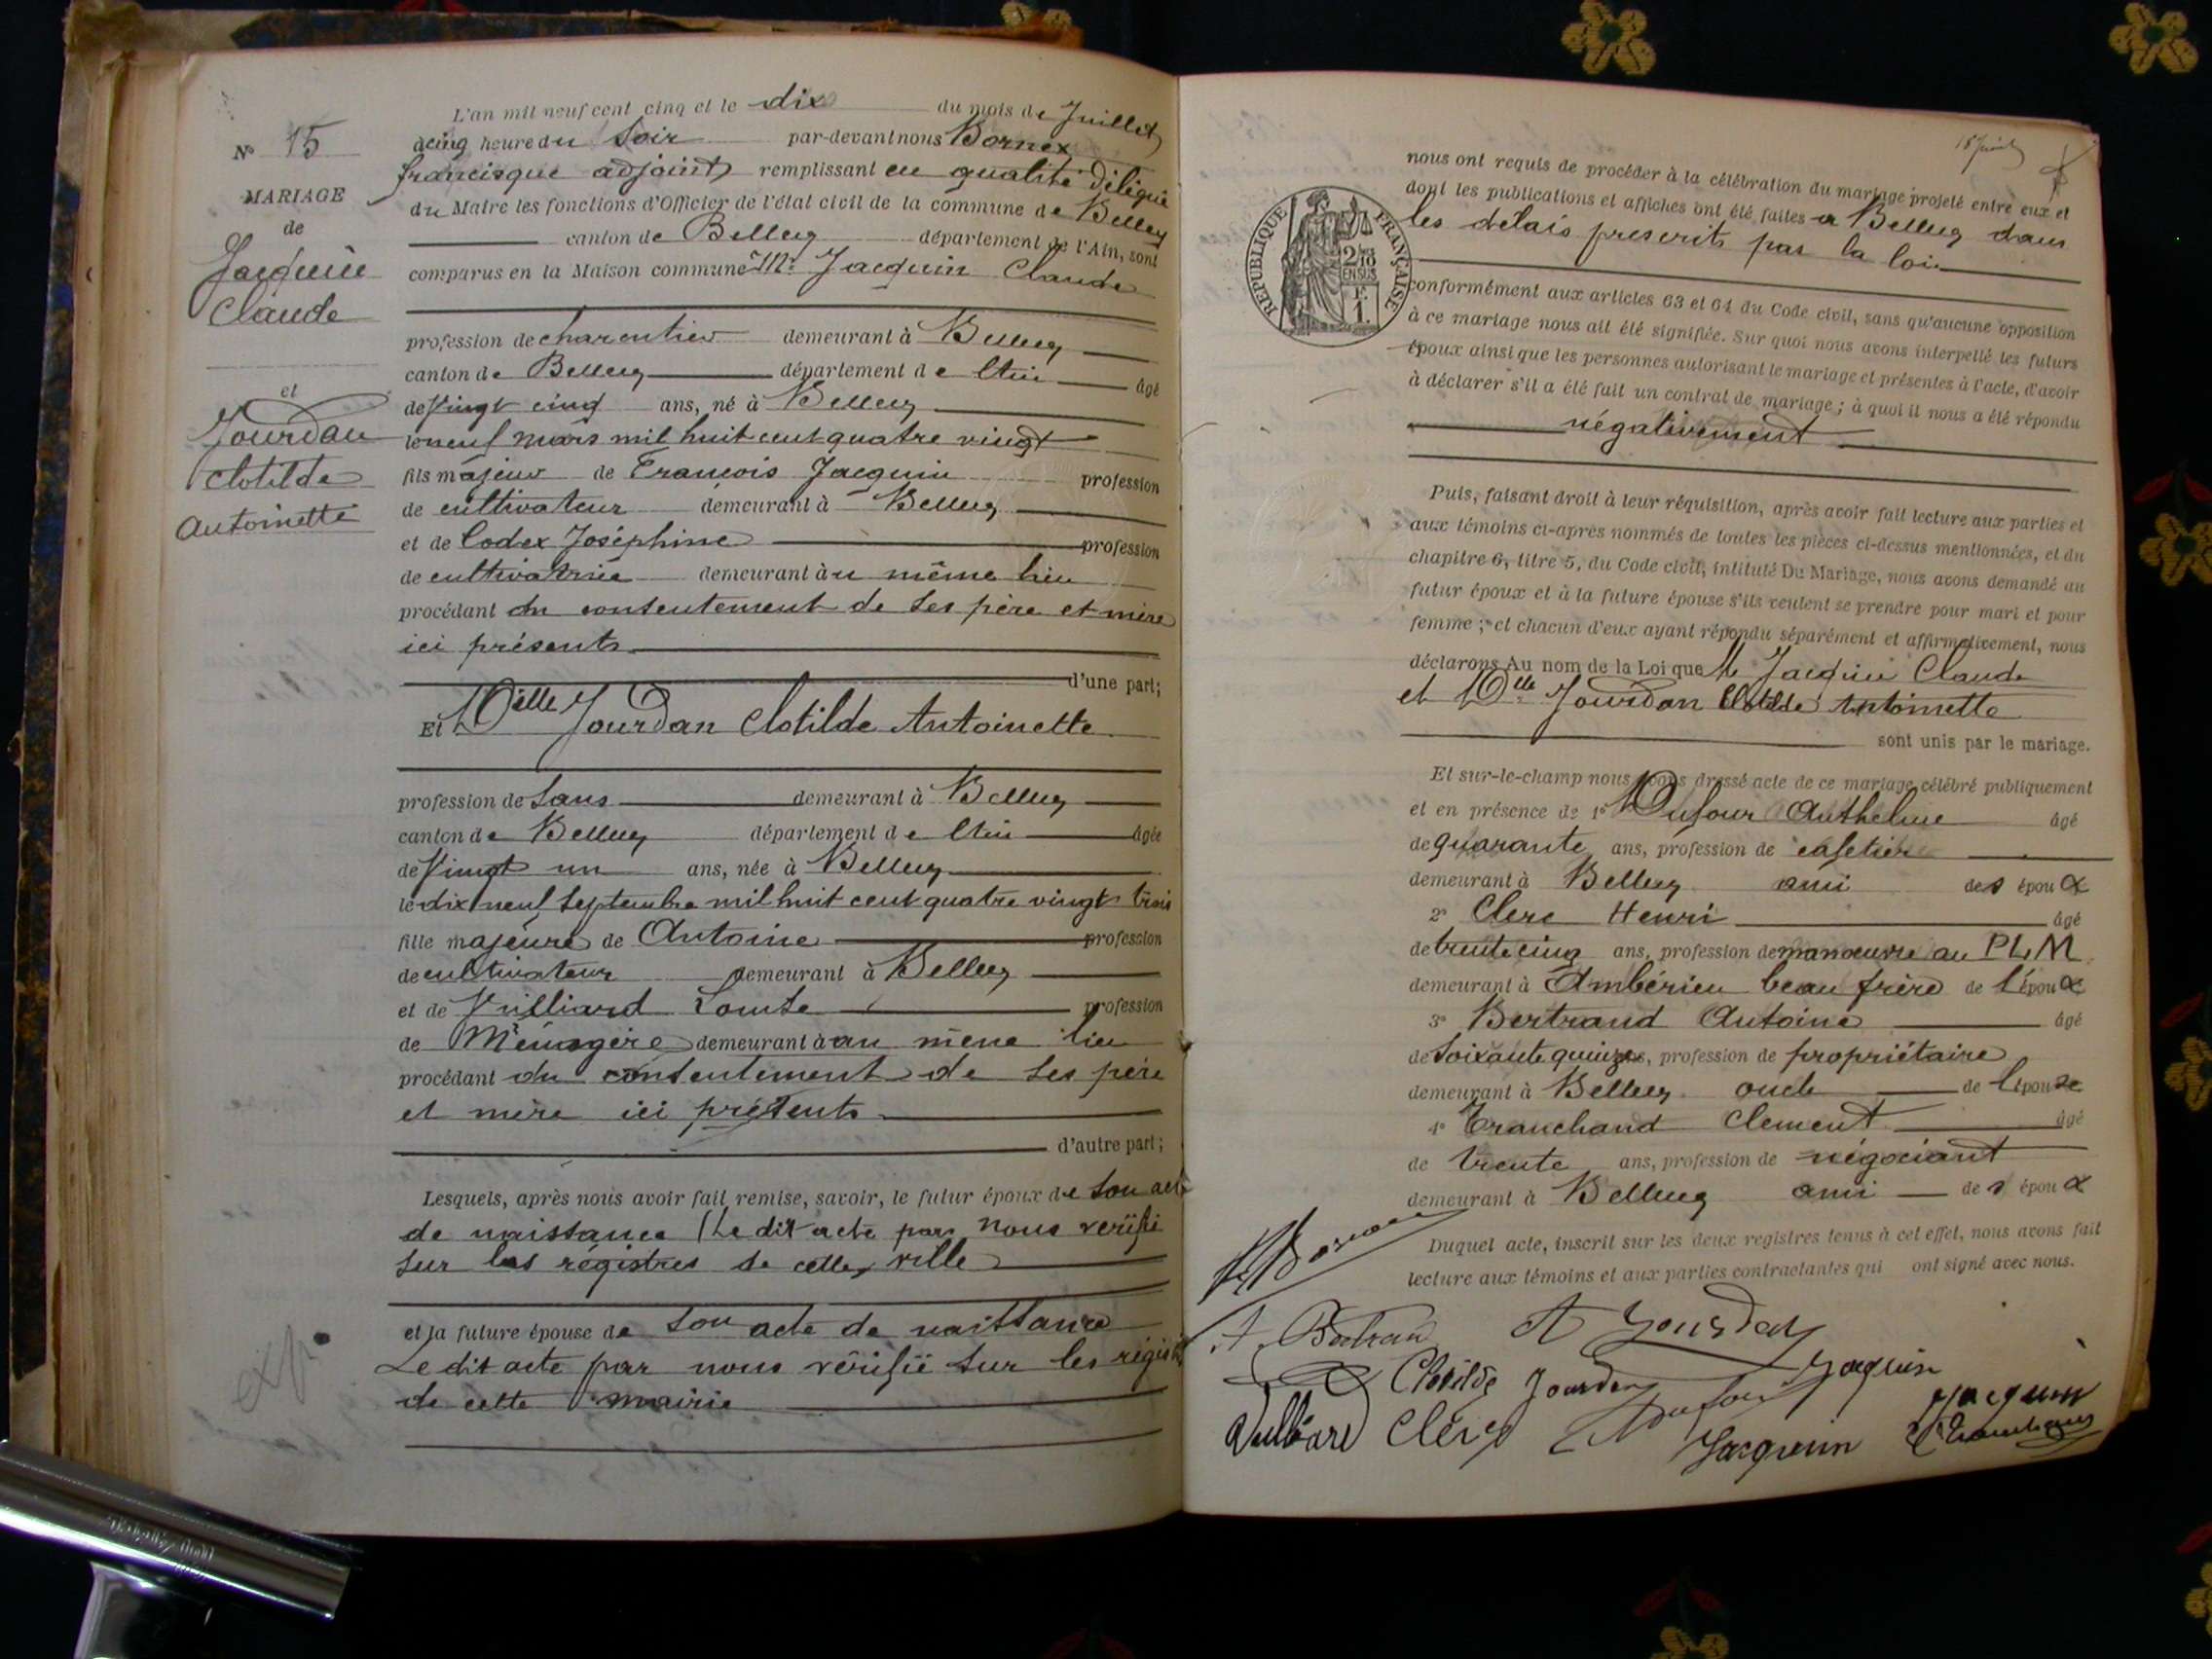 N° 15
MARIAGE
de
Jacquin
Claude
et
Jourdan
Clotilde
Antoinette
L'an mil neuf cent cinq et le dix du mois de Juillet
à cinq heure du Soir par-devant nous Bornex
francisque adjoint remplissant en qualité délégué
du Maire les fonctions d'Officier de l'état civil de la commune de Belley
canton de Belley département de l'Ain, sont
comparus en la Maison commune Mr Jacquin Claude
profession de charentier demeurant à Belley
canton de Belley département de l'Ain âgé
de Vingt cinq ans, né à Belley
le neuf mars mil huit cent quatre vingt
fils majeur de Francois Jacquin profession
de cultivateur demeurant à Belley
et de Codex Joséphine profession
de cultivatrice demeurant au même lieu
procédant du consentement de ses père et mère
ici présents
d'une part;
Et Delle Jourdan Clotilde Antoinette
profession de Sans demeurant à Belley
canton de Belley département de l'Ain âgée
de Vingt un ans, née à Belley
le dix neuf Septembre mil huit cent quatre vingt trois
fille majeure de Antoine profession
de cultivateur demeurant à Belley
et de Vuilliard Louise profession
de Ménagère demeurant à au même lieu
procédant du consentement de ses père
et mère ici présents
d'autre part;
Lesquels, après nous avoir fait remise, savoir, le futur époux de son acte
de naissance (Le dit acte par nous vérifié
sur les régistres de cette ville
et la future épouse de son acte de naissance
Le dit acte par nous vérifié sur les régist
de cette mairie
exp.
nous ont requis de procéder à la célébration du mariage projeté entre eux et
dont les publications et affiches ont été faites à Belley dans
les délais prescrits par la loi
REPUBLIQUE FRANÇAISE
2/10 EN SUS
F. 1.
conformément aux articles 63 et 64 du Code civil, sans qu'aucune opposition
à ce mariage nous ait été signifiée. Sur quoi nous avons interpellé les futurs
époux ainsi que les personnes autorisant le mariage et présentes à l'acte, d'avoir
à déclarer s'il a été fait un contrat de mariage; à quoi il nous a été répondu
négativement
Puis, faisant droit à leur réquisition, après avoir fait lecture aux parties et
aux témoins ci-après nommés de toutes les pièces ci-dessus mentionnées, et du
chapitre 6, titre 5, du Code civil, intitulé Du Mariage, nous avons demandé au
futur époux et à la future épouse s'ils veulent se prendre pour mari et pour
femme; et chacun d'eux ayant répondu séparément et affirmativement, nous
déclarons Au nom de la Loi que Mr Jacquin Claude
et Delle Jourdan Clotilde Antoinette
sont unis par le mariage.
Et sur-le-champ nous avons dressé acte de ce mariage célébré publiquement
et en présence de 1° Dufour Anthelme âgé
de quarante ans, profession de cafetier
demeurant à Belley ami des époux
2° Clerc Henri âgé
de trente cinq ans, profession de manœuvre au PLM
demeurant à Ambérieu beau frère de l'époux
3° Bertrand Antoine âgé
de Soixante quinze ans, profession de propriétaire
demeurant à Belley oncle de l'épouse
4° Tranchand Clement âgé
de trente ans, profession de négociant
demeurant à Belley ami des époux
Duquel acte, inscrit sur les deux registres tenus à cet effet, nous avons fait
lecture aux témoins et aux parties contractantes qui ont signé avec nous.
A Jourdan
Clotilde Jourdan Jacquin
Jacquin
Clerc Dufour
Jacquin